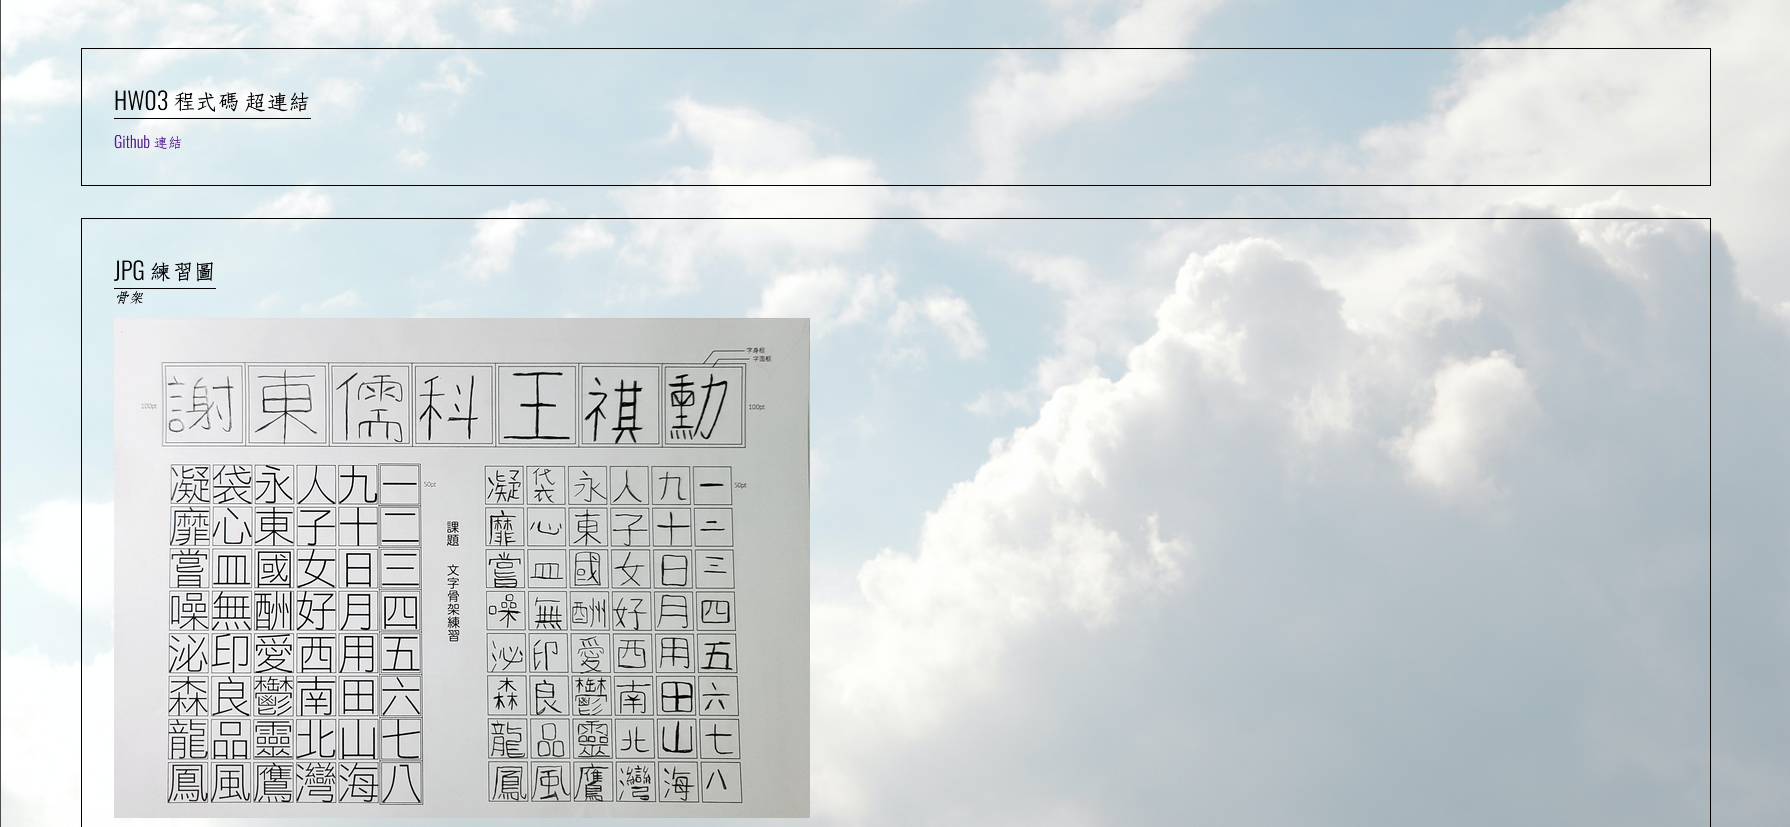 HW03 程式碼 超連結
Github 連結
JPG 練習圖
骨架
字身框
字面框
100pt
謝東儒科王祺勳
100pt
凝袋永人九一
50pt
靡心東子十二
嘗皿國女日三
噪無酬好月四
泌印愛西用五
森良鬱南田六
龍品靈北山七
鳳風鷹灣海八
課題 文字骨架練習
凝袋永人九一
50pt
靡心東子十二
嘗皿國女日三
噪無酬好月四
泌印愛西用五
森良鬱南田六
龍品靈北山七
鳳風鷹灣海八